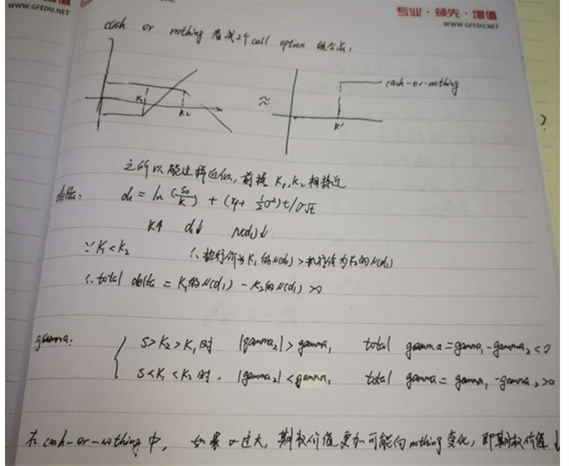 WWW.GFEDU.NET
专业·领先·增值
WWW.GFEDU.NET
cash or nothing 看成2个call option 组合成:
K₁ K₂ ≈ K' cash-or-nothing
之所以能这样近似,前提 K₁,K₂ 相接近
delta: d₁ = ln(S₀/K) + (r+½σ²)t/σ√t
K↑ d₁↓ N(d₁)↓
∵ K₁<K₂ ∴ 执行价为K₁的N(d₁)>执行价为K₂的N(d₁)
∴ total delta = K₁的N(d₁) - K₂的N(d₁) >0
gamma: S>K₂>K₁时 |gamma₂|>gamma₁ total gamma=gamma₁-gamma₂<0
S<K₁<K₂时. |gamma₂|<gamma₁ total gamma= gamma₁-gamma₂>0
在 cash-or-nothing 中, 如果σ过大, 期权价值更加可能向nothing变化, 即期权价值↓